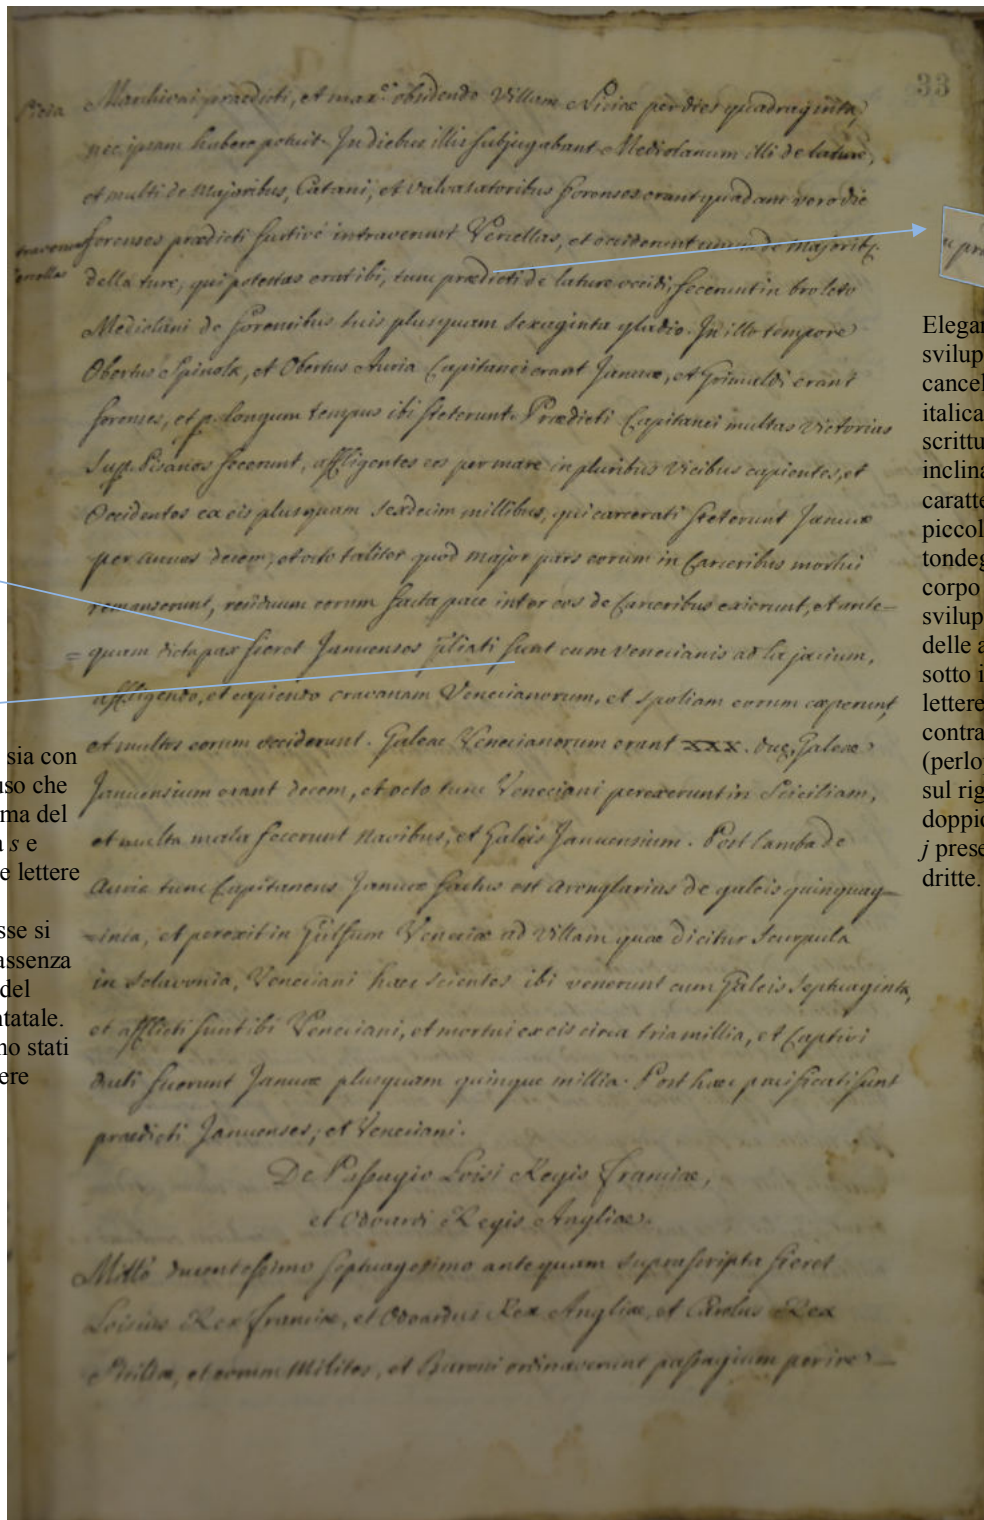 33
Nicia
Marchioni praedicti, et max.e obsidendo Villam Niciae per dies quadraginta,
nec ipsam habere potuit. In diebus illis subjugabant Mediolanum illi de lature,
et multi de Majoribus, Catani, et Valvasatoribus forenses erant quadam vero die
forenses praedicti furtivé intraverunt Vercellas, et occiderunt unum de majorib
della ture, qui potestas erat ibi, tunc praedicti de lature occidi fecerunt in broleto
Mediolani de forensibus suis plusquam sexaginta gladio. In illo tempore
Obertus Spinola, et Obertus Auria Capitanei erant Januae, et Grimaldi erant
forenses, et p. longum tempus ibi steterunt. Praedicti Capitanei multas Victorias
Sup. Pisanos fecerunt, affligentes eos per mare in pluribus vicibus capientes, et
Occidentes ex eis plusquam sexdecim millibus, qui carcerati steterunt Januae
per annos decem, et octo taliter quod major pars eorum in Carceribus mortui
remanserunt, residuum eorum facta pace inter eos de Carceribus exierunt, et ante=
= quam dicta pax fieret Januenses filiati sunt cum Venecianis ad la jacium,
affligendo, et capiendo cravanam Venecianorum, et spoliam eorum caeperunt,
et multos eorum occiderunt. Galeae Venecianorum erant XXX. due, Galeae
Januensium erant decem, et octo tunc Veneciani perexerunt in Siciliam,
et multa mala fecerunt navibus, et Galeis Januensium. Post lamba de
Auria tunc Capitaneus Januae factus est
de galeis quinquag=
=inta, et perexit in Gulfum Veneciae ad Villam quae dicitur Scurpula
in Sclavonia, Veneciani haec scientes ibi venerunt cum Galeis septuaginta,
et afflicti sunt ibi Veneciani, et mortui ex eis circa tria millia, et Captivi
ducti fuerunt Januae plusquam quinque millia. Post haec pacificati sunt
praedicti Januenses, et Veneciani.
De Passagio Loisi Regis Franciae,
et Odoardi Regis Angliae.
Millo ducentessimo septuagesimo antequam suprascripta fieret
Loisius Rex Franciae, et Odoardus Rex Angliae, et Carolus Rex
et eorum Milites, et Baroni ordinaverunt passagium per ire
sia con
uso che
ma del
a s e
e lettere
sse si
assenza
del
tatale.
no stati
ere
u pra
Elegan
svilup
cancel
italica
scrittu
inclina
caratte
piccol
tondeg
corpo
svilup
delle a
sotto i
lettere
contra
(perlo
sul rig
doppio
j prese
dritte.